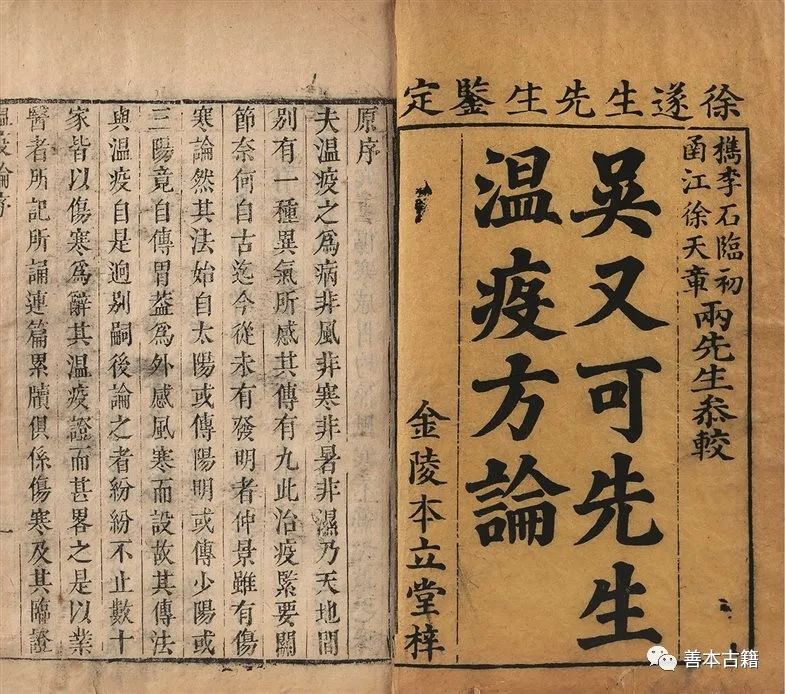 徐遂生先生鑒定
檇李石臨初
甬江徐天章
兩先生叅較
吳又可先生
温疫方論
金陵本立堂梓
原序
夫温疫之爲病非風非寒非暑非濕乃天地間
别有一種異氣所感其傳有九此治疫緊要關
節奈何自古迄今從未有發明者仲景雖有傷
寒論然其法始自太陽或傳陽明或傳少陽或
三陽竟自傳胃葢爲外感風寒而設故其傳法
與温疫自是迥别嗣後論之者紛紛不止數十
家皆以傷寒爲辭其温疫證而甚畧之是以業
醫者所記所誦連篇累牘俱係傷寒及其臨證
温疫論序
一
善本古籍